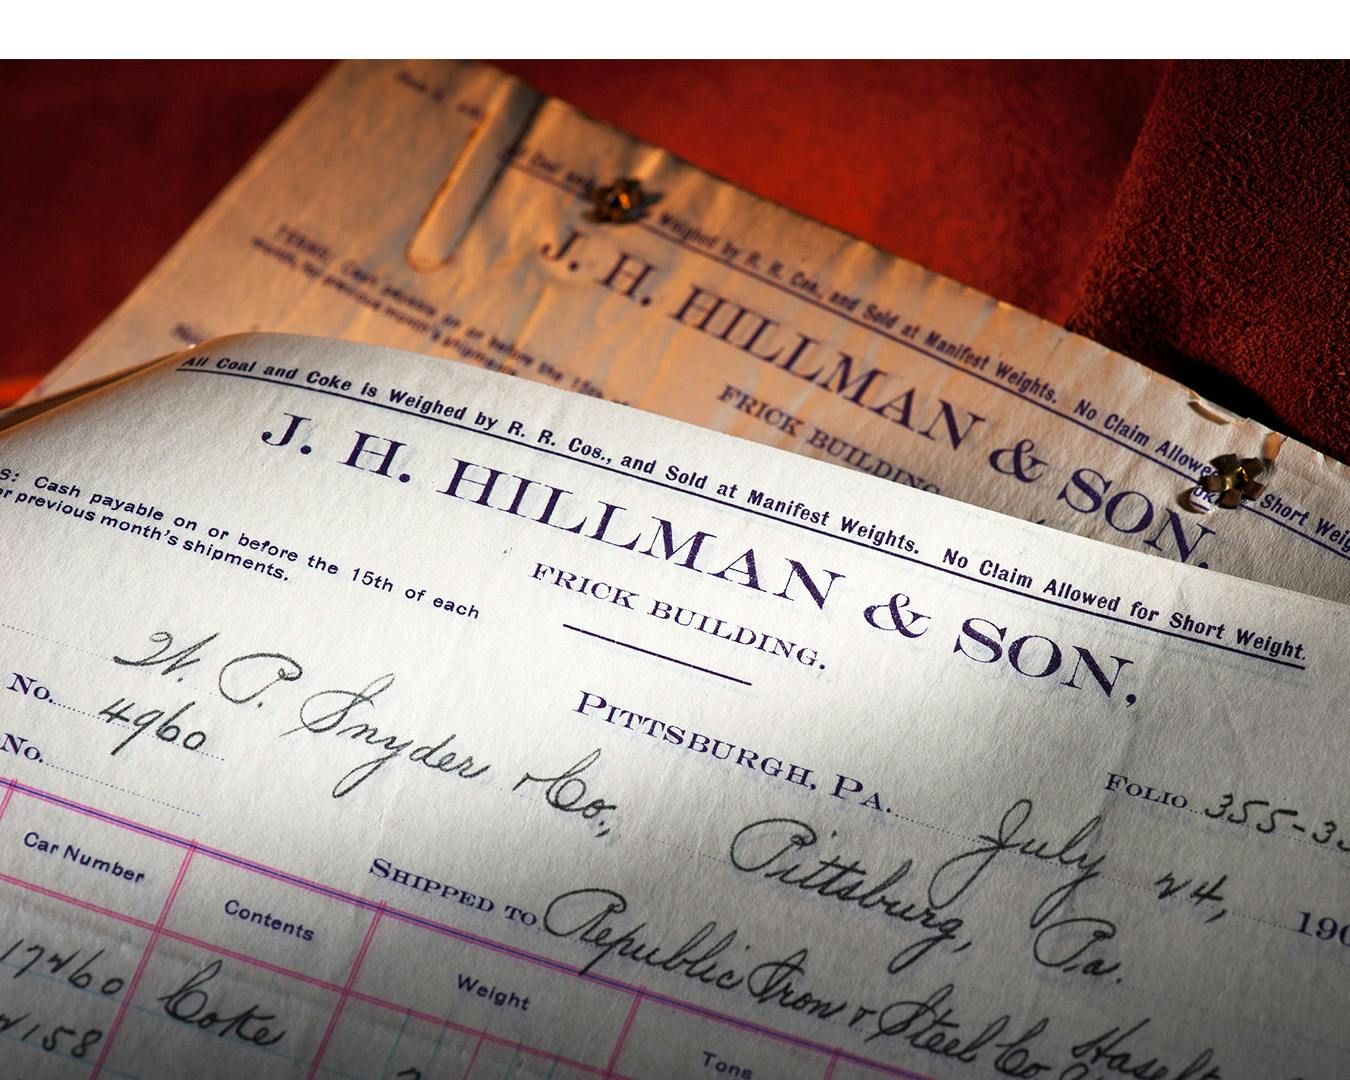 Weighed by R. R. Cos., and Sold at Manifest Weights. No Claim Allowed Short Weig
J. H. HILLMAN & SON.
TERMS: Cash payable on or before the 15th
month, for previous month's shipments.
FRICK BUILDING
All Coal and Coke is Weighed by R. R. Cos., and Sold at Manifest Weights. No Claim Allowed for Short Weight.
J. H. HILLMAN & SON,
S: Cash payable on or before the 15th of each
or previous month's shipments.
FRICK BUILDING.
PITTSBURGH, PA.
FOLIO 355-3
July 24, 190
W. P. Snyder & Co.,
Pittsburg, Pa.
No. 4960
No.
SHIPPED TO Republic Iron & Steel Co Hasel
Car Number Contents Weight Tons
17260 Coke
2158